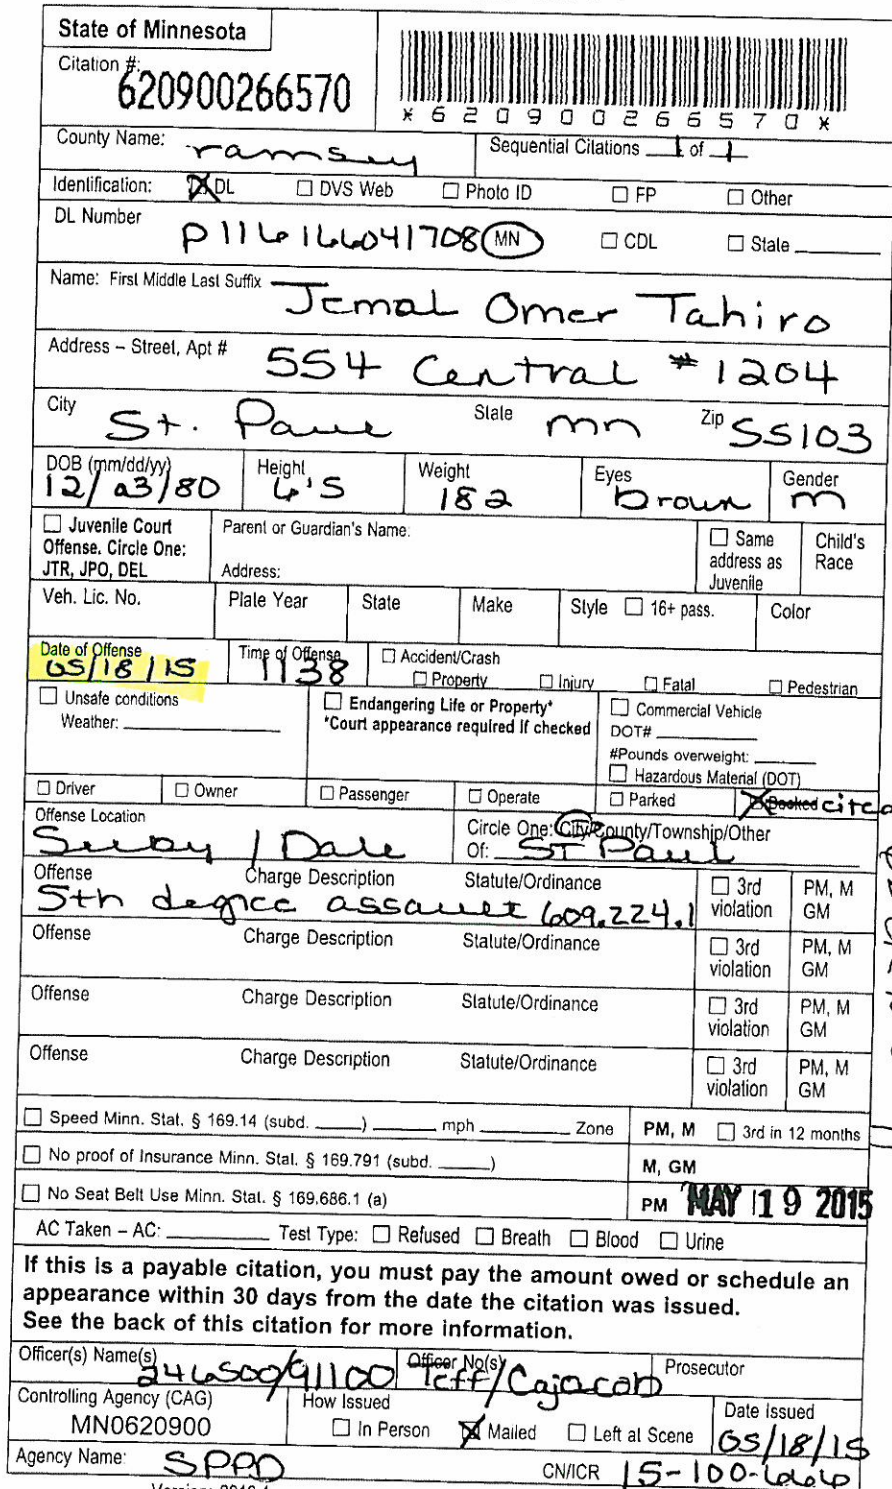 State of Minnesota
Citation #:
620900266570
*620900266570*
County Name: ramsey Sequential Citations 1 of 1
Identification: DL DVS Web Photo ID FP Other
DL Number P116166041708 MN CDL State
Name: First Middle Last Suffix Jemal Omer Tahiro
Address – Street, Apt # 554 Central # 1204
City St. Paul State mn Zip 55103
DOB (mm/dd/yy) Height Weight Eyes Gender
12/23/80 6'5 182 brown m
Juvenile Court Offense. Circle One: JTR, JPO, DEL
Parent or Guardian's Name:
Address:
Same address as Juvenile
Child's Race
Veh. Lic. No. Plate Year State Make Style 16+ pass. Color
Date of Offense Time of Offense Accident/Crash
05/18/15 1138 Property Injury Fatal Pedestrian
Unsafe conditions
Weather:
Endangering Life or Property*
*Court appearance required if checked
Commercial Vehicle
DOT#
#Pounds overweight:
Hazardous Material (DOT)
Driver Owner Passenger Operate Parked Booked cited
Offense Location
Selby / Dale
Circle One: City/County/Township/Other
Of: ST Paul
Offense Charge Description Statute/Ordinance 3rd violation PM, M GM
5th degree assault 609.224.1
Offense Charge Description Statute/Ordinance 3rd violation PM, M GM
Offense Charge Description Statute/Ordinance 3rd violation PM, M GM
Offense Charge Description Statute/Ordinance 3rd violation PM, M GM
Speed Minn. Stat. § 169.14 (subd. ) mph Zone PM, M 3rd in 12 months
No proof of Insurance Minn. Stat. § 169.791 (subd. ) M, GM
No Seat Belt Use Minn. Stat. § 169.686.1 (a) PM
MAY 19 2015
AC Taken – AC: Test Type: Refused Breath Blood Urine
If this is a payable citation, you must pay the amount owed or schedule an
appearance within 30 days from the date the citation was issued.
See the back of this citation for more information.
Officer(s) Name(s) Officer No(s) Prosecutor
246500/91100 Teff/Cajacob
Controlling Agency (CAG) How Issued Date Issued
MN0620900 In Person Mailed Left at Scene 05/18/15
Agency Name: SPPD CN/ICR 15-100-666